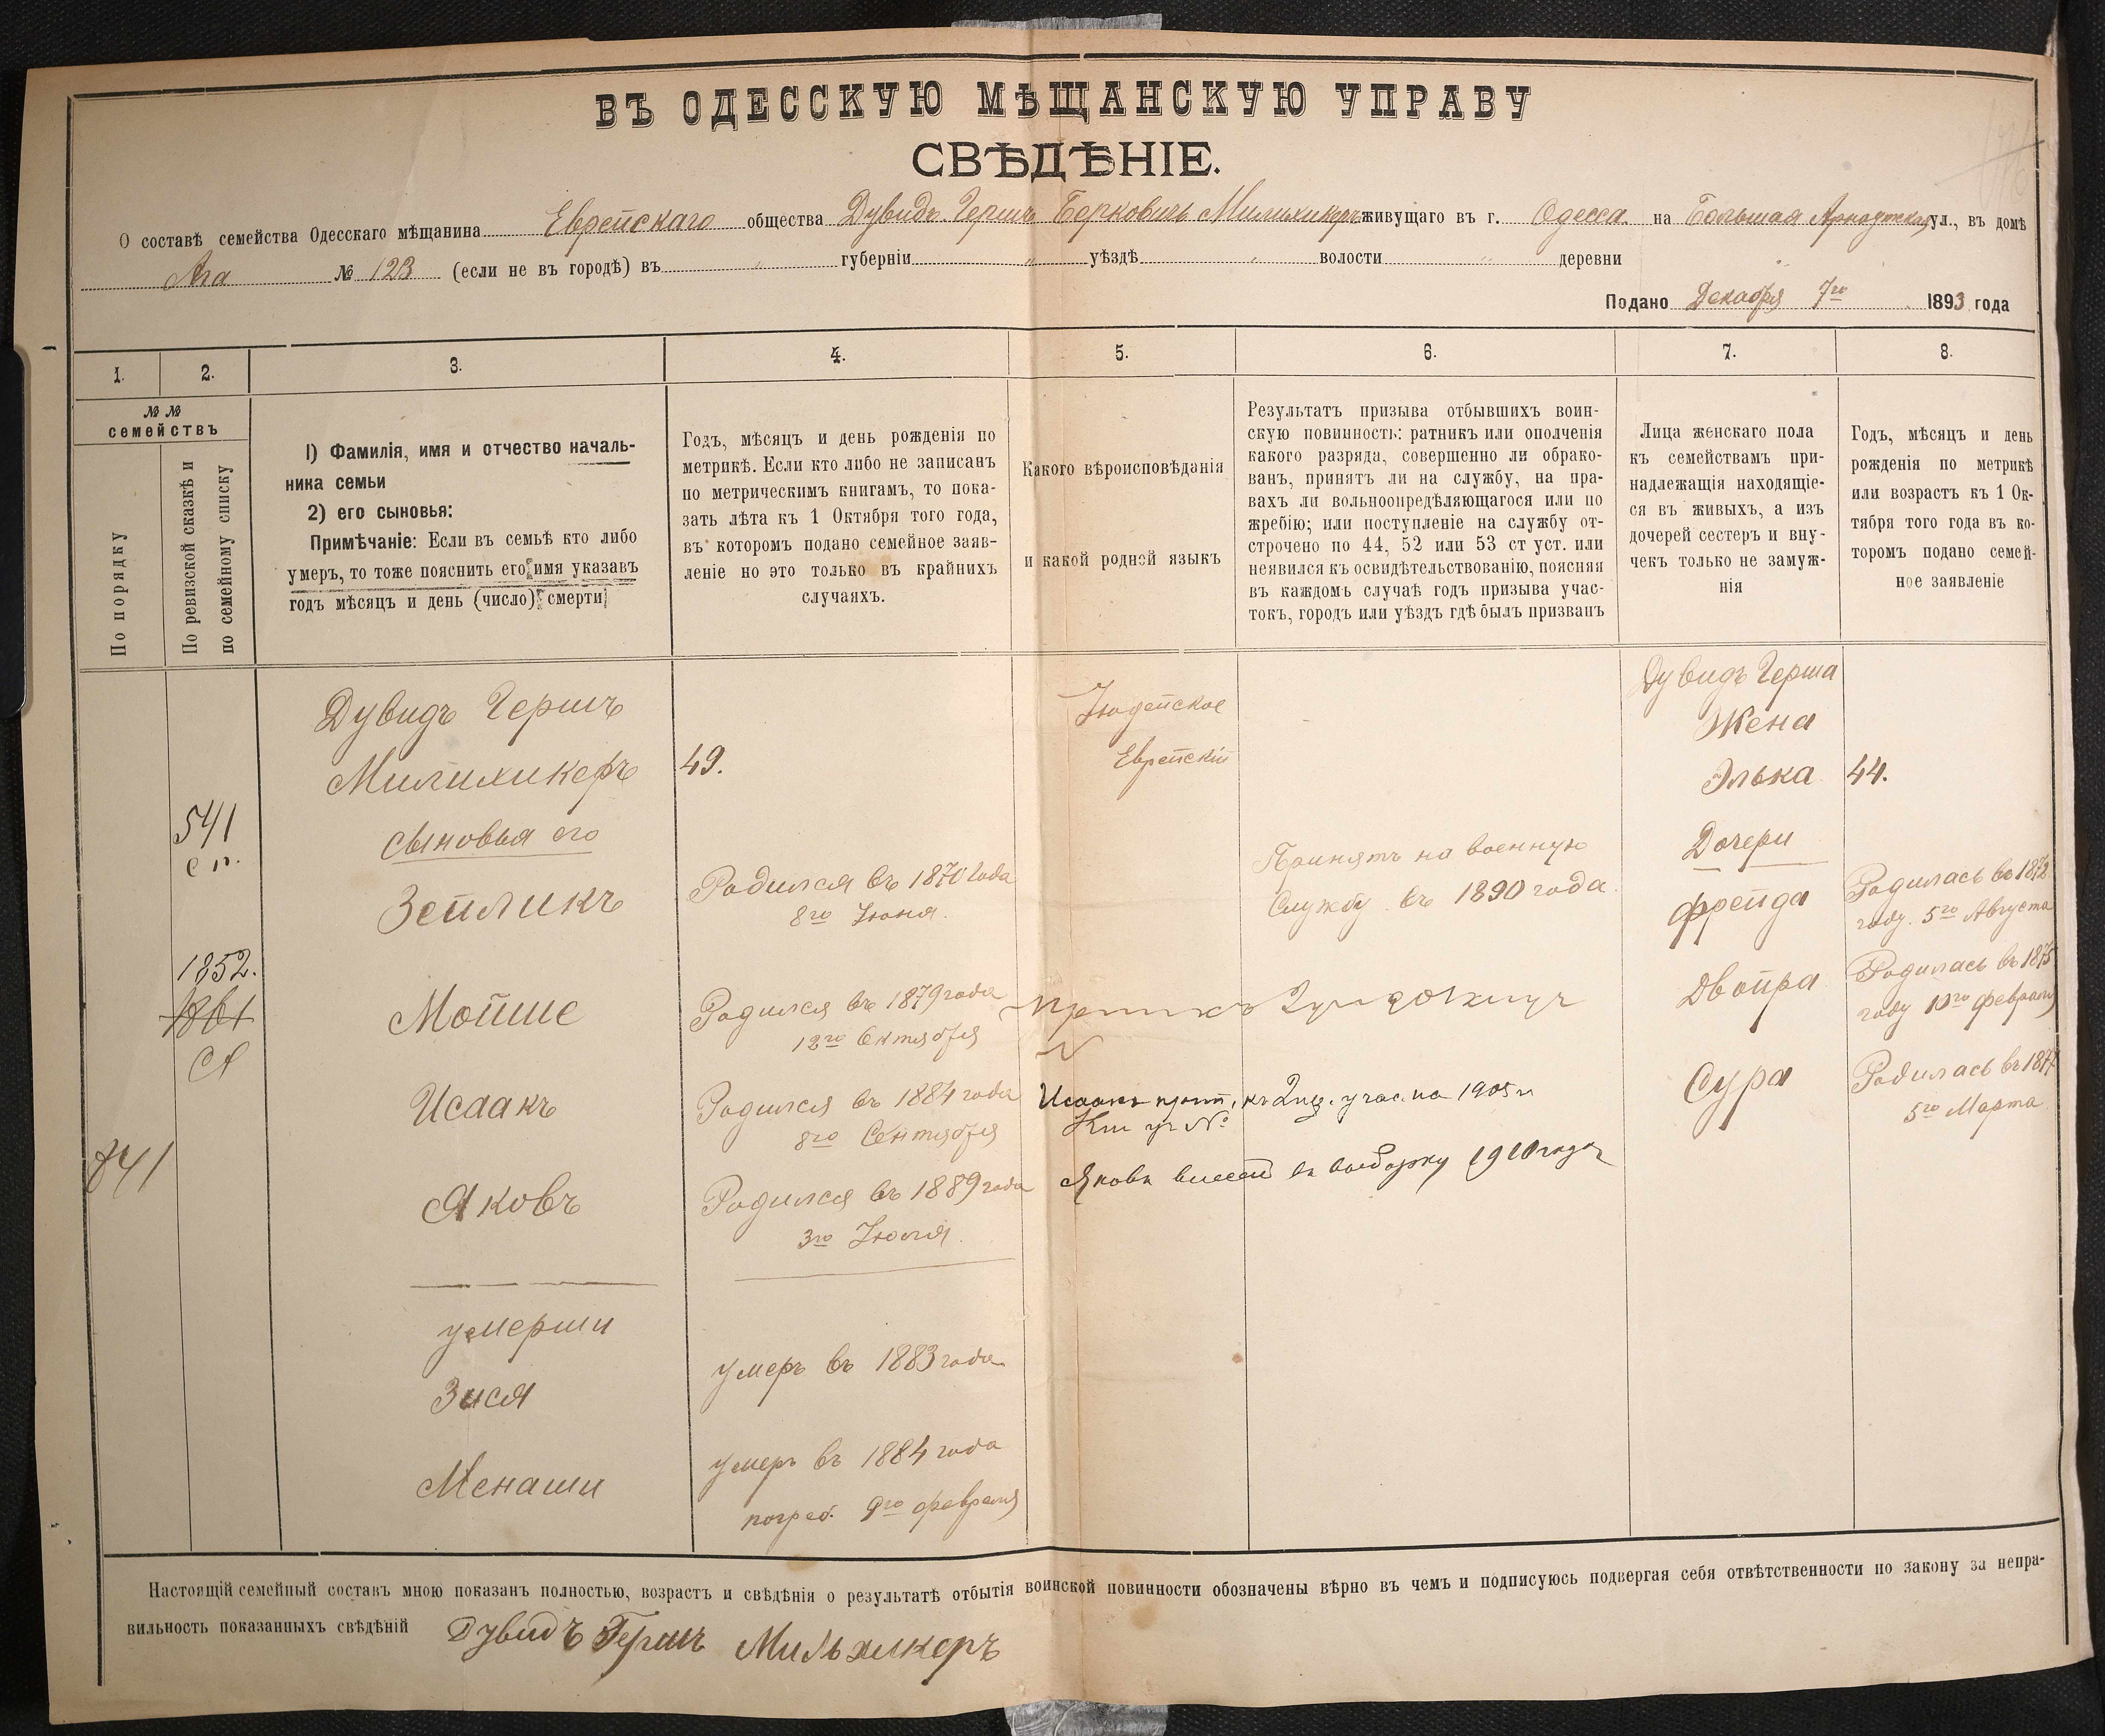 ВЪ ОДЕССКУЮ МѢЩАНСКУЮ УПРАВУ
СВѢДѢНІЕ.
О составѣ семейства Одесскаго мѣщанина Еврейскаго общества Дувидъ Гершъ Берковичъ Мильхикеръ живущаго въ г. Одесса на Большая Арнаутская ул., въ домѣ
№ 123 (если не въ городѣ) въ " губерніи " уѣздѣ " волости " деревни
Подано Декабря 7го 1893 года
1.
2.
3.
4.
5.
6.
7.
8.
№ №
семействъ
По порядку
По ревизской сказкѣ и
по семейному списку
1) Фамилія, имя и отчество началь-
ника семьи
2) его сыновья:
Примѣчаніе: Если въ семьѣ кто либо
умеръ, то тоже пояснить его имя указавъ
годъ мѣсяцъ и день (число) смерти
Годъ, мѣсяцъ и день рожденія по
метрикѣ. Если кто либо не записанъ
по метрическимъ книгамъ, то пока-
зать лѣта къ 1 Октября того года,
въ которомъ подано семейное заяв-
леніе но это только въ крайнихъ
случаяхъ.
Какого вѣроисповѣданія
и какой родной языкъ
Результатъ призыва отбывшихъ воин-
скую повинность: ратникъ или ополченія
какого разряда, совершенно ли обрако-
ванъ, принятъ ли на службу, на пра-
вахъ ли вольноопредѣляющагося или по
жребію; или поступленіе на службу от-
строчено по 44, 52 или 53 ст уст. или
неявился къ освидѣтельствованію, поясняя
въ каждомъ случаѣ годъ призыва учас-
токъ, городъ или уѣздъ гдѣ былъ призванъ
Лица женскаго пола
къ семействамъ при-
надлежащія находящіе-
ся въ живыхъ, а изъ
дочерей сестеръ и вну-
чекъ только не замуж-
нія
Годъ, мѣсяцъ и день
рожденія по метрикѣ
или возрастъ къ 1 Ок-
тября того года въ ко-
торомъ подано семей-
ное заявленіе
541
сп.
1852.
1861
841
Дувидъ Гершъ
Мильхикеръ
49.
Іюдейское
Еврейскій
Дувидъ Герша
Жена
Элька
44.
сыновья его
Зейликъ
Родился въ 1870 года
8го Іюня.
Принятъ на военную
Службу въ 1890 года.
Дочери
Фрейда
Родилась въ 1872
году. 5го Августа
Мойше
Родился въ 1879 года
12го Октября
Двойра
Родилась въ 1875
году 10го февраля
Исаакъ
Родился въ 1884 года
8го Сентября
Исаакъ прип. къ 2 уч. на 1905 г
Сура
Родилась въ 1877
5го Марта
Яковъ
Родился въ 1889 года
3го Іюля.
Яковъ внесен въ выборку 1910 года
умерши
Зися
умеръ въ 1883 года
Менаши
умеръ въ 1884 года
погреб. 9го февраля
Настоящій семейный составъ мною показанъ полностью, возрастъ и свѣдѣнія о результатѣ отбытія воинской повинности обозначены вѣрно въ чемъ и подписуюсь подвергая себя отвѣтственности по закону за непра-
вильность показанныхъ свѣдѣній Дувидъ Гершъ Мильхикеръ